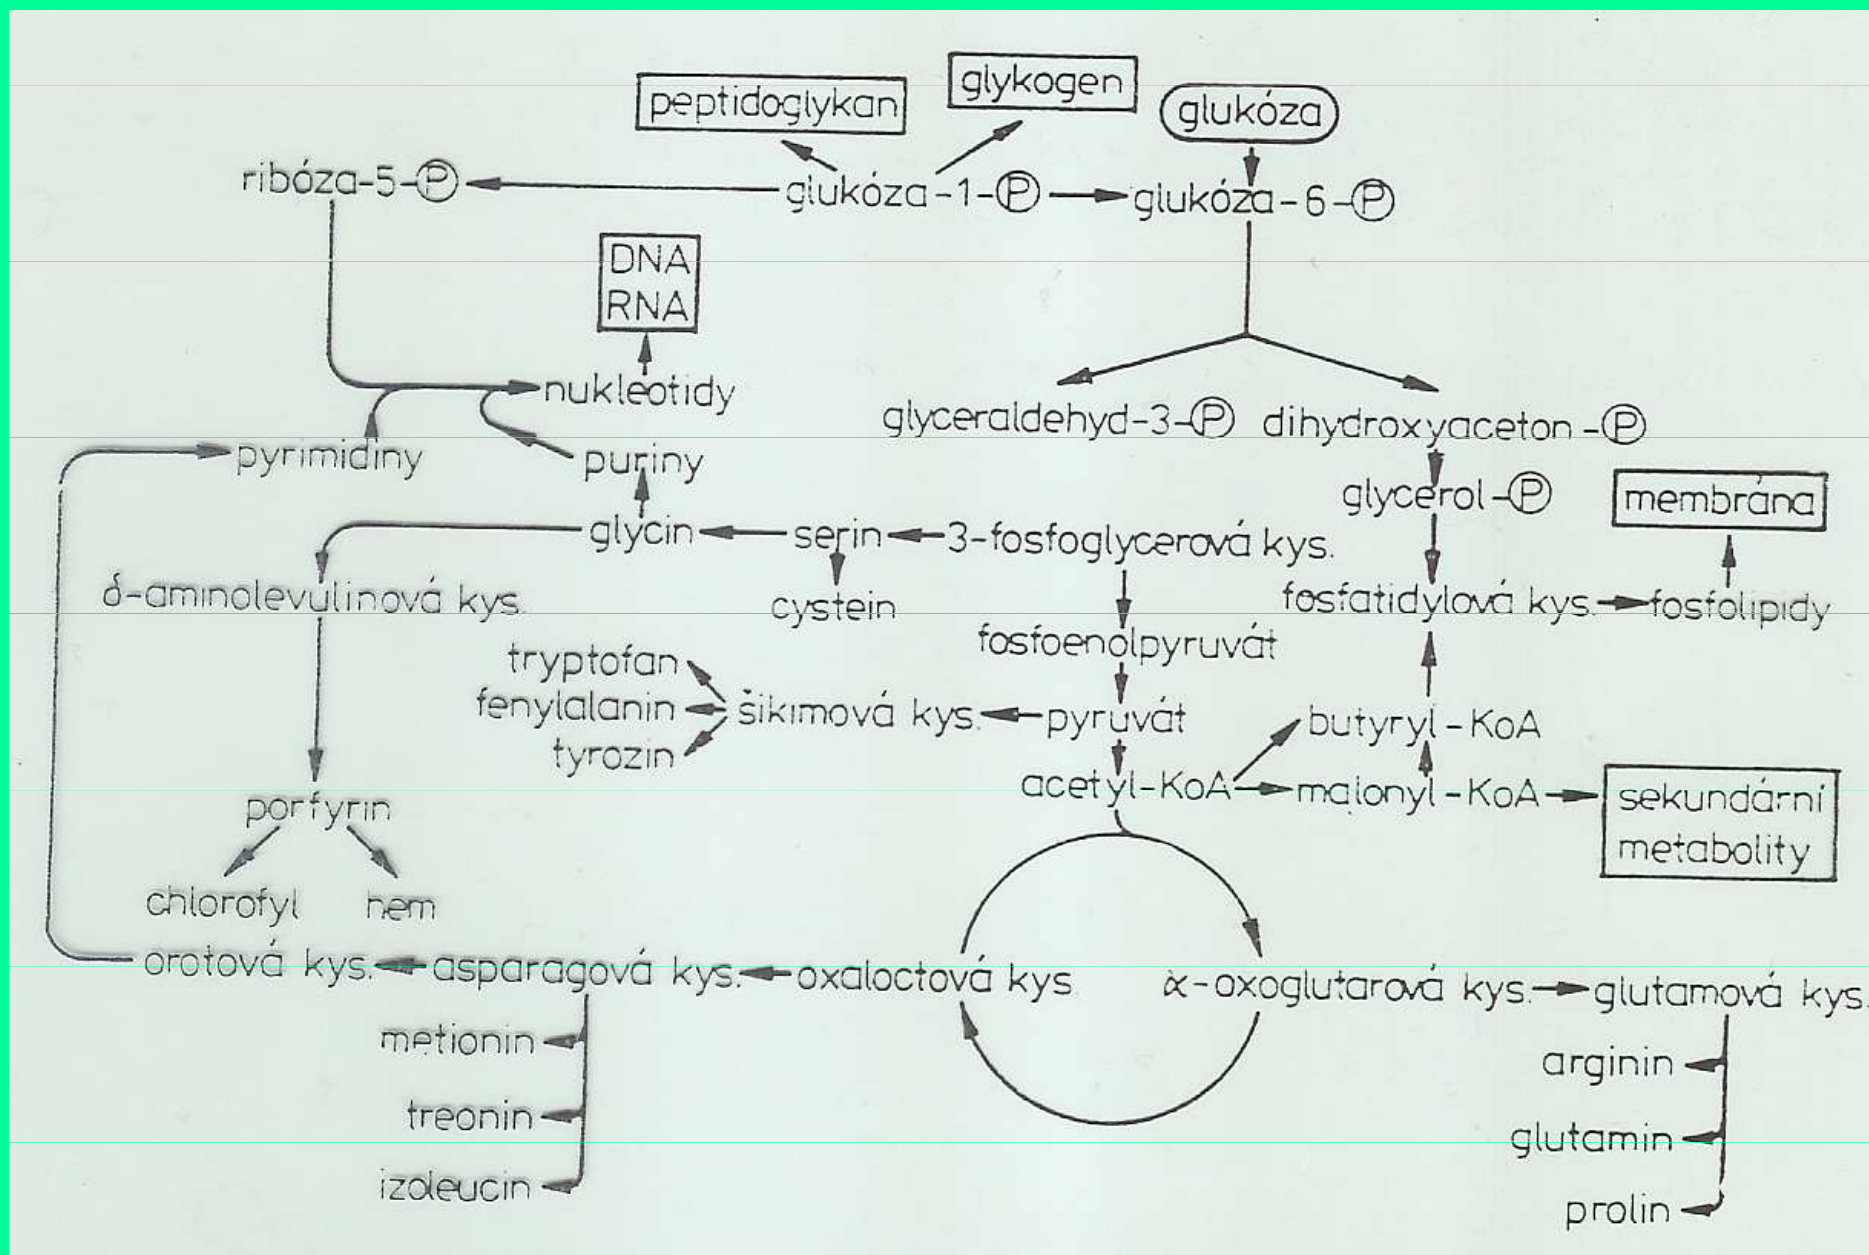 glykogen
peptidoglykan
glukóza
ribóza-5-P
glukóza-1-P
glukóza-6-P
DNA
RNA
nukleotidy
glyceraldehyd-3-P
dihydroxyaceton-P
pyrimidiny
puriny
glycerol-P
membrána
glycin
serin
3-fosfoglycerová kys.
δ-aminolevulinová kys.
cystein
fosfatidylová kys.
fosfolipidy
fosfoenolpyruvát
tryptofan
fenylalanin
šikimová kys.
pyruvát
butyryl-KoA
tyrozin
acetyl-KoA
malonyl-KoA
sekundární
metabolity
porfyrin
chlorofyl
hem
orotová kys.
asparagová kys.
oxaloctová kys
α-oxoglutarová kys.
glutamová kys.
metionin
arginin
treonin
glutamin
izoleucin
prolin